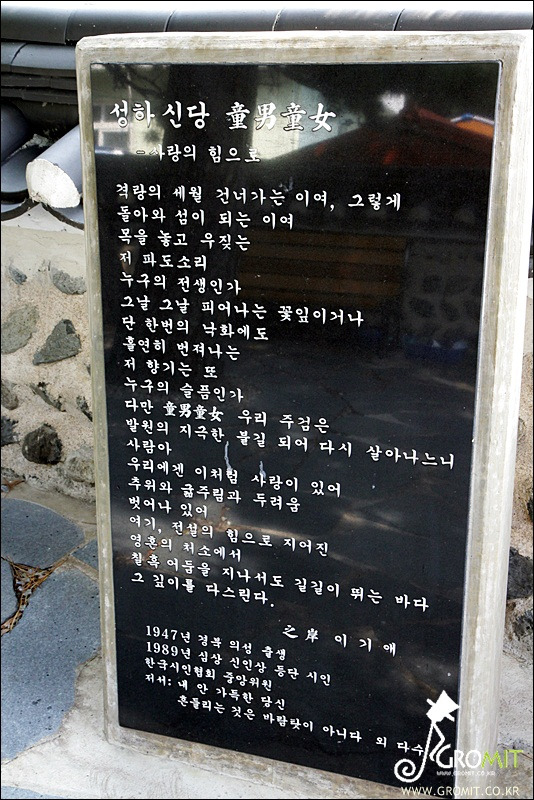 성하 신당 童男童女
- 사랑의 힘으로
격랑의 세월 건너가는 이여, 그렇게
돌아와 섬이 되는 이여
목을 놓고 우짖는
저 파도소리
누구의 전생인가
그날 그날 피어나는 꽃잎이거나
단 한번의 낙화에도
홀연히 번져나는
저 향기는 또
누구의 슬픔인가
다만 童男童女 우리 주검은
발원의 지극한 불길 되어 다시 살아나느니
사람아
우리에겐 이처럼 사랑이 있어
추위와 굶주림과 두려움
벗어나 있어
여기, 전설의 힘으로 지어진
영혼의 처소에서
칠흑 어둠을 지나서도 길길이 뛰는 바다
그 깊이를 다스린다.
之岸 이 기 애
1947년 경북 의성 출생
1989년 심상 신인상 등단 시인
한국시인협회 중앙위원
저서: 내 안 가득한 당신
흔들리는 것은 바람탓이 아니다 외 다수
GROMIT
WWW.GROMIT.CO.KR
WWW.GROMIT.CO.KR